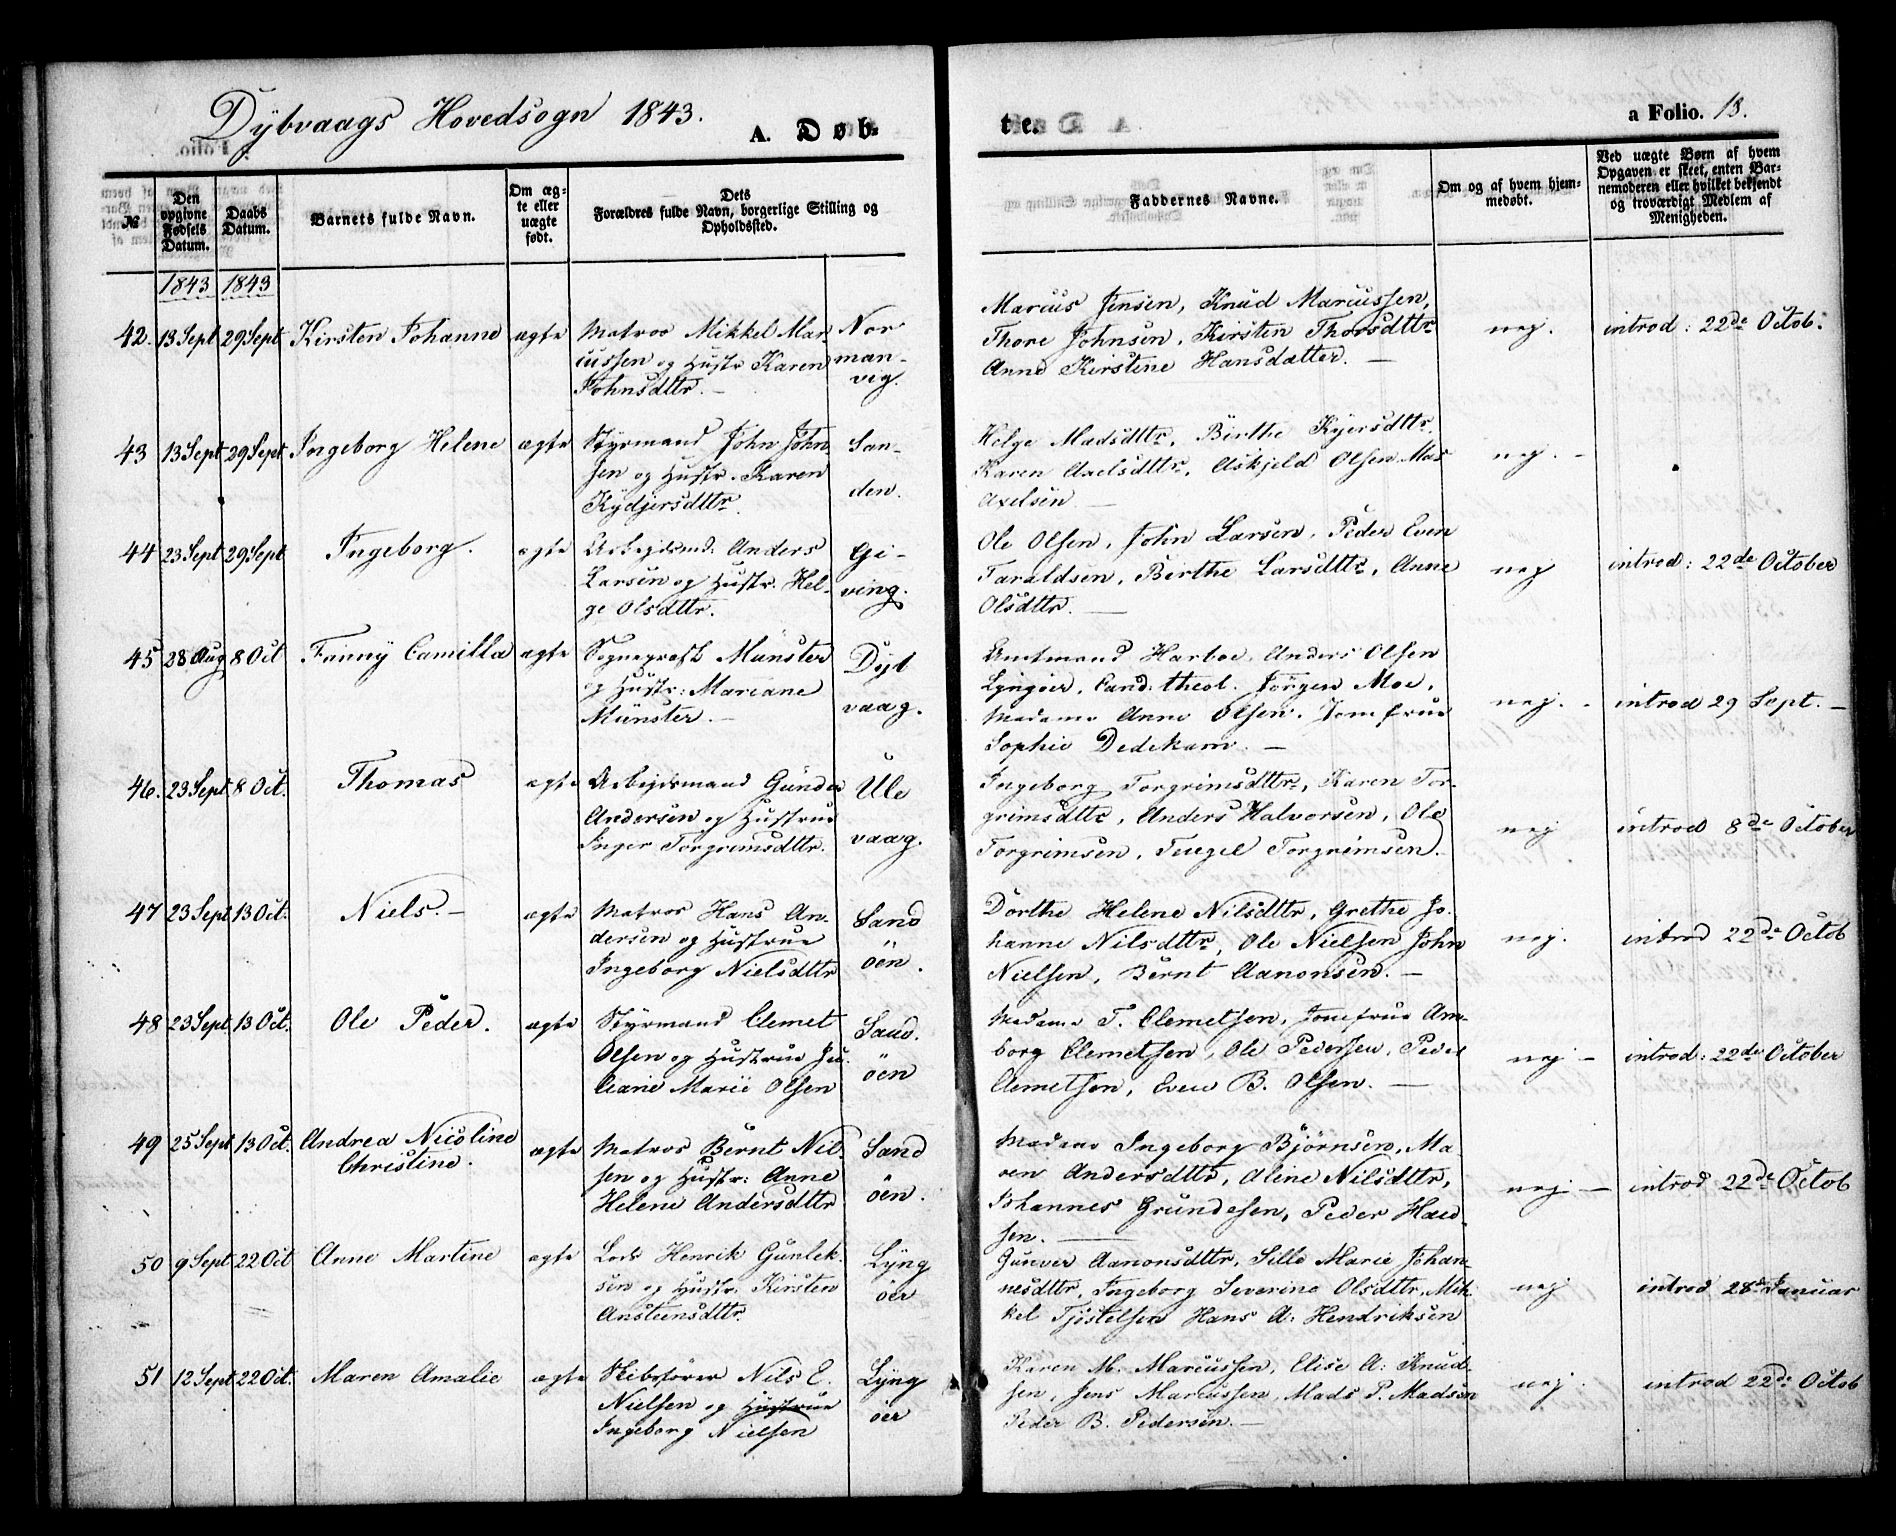 Dybvaags Hovedsogn 1843. A. Døb-
te. a Folio. 18.
№
Den opgivne Fødsels Datum.
Daabs Datum.
Barnets fulde Navn.
Om ægte eller uægte født.
Dets Forældres fulde Navn, borgerlige Stilling og Opholdssted.
Faddernes Navne.
Om og af hvem hjemmedøbt.
Ved uægte Børn af hvem Opgaven er skeet, enten Barnemoderen eller hvilket bekjendt og troværdigt Medlem af Menigheden.
1843 1843
42. 13 Sept 29 Sept Kirsten Johanne ægte
Matros Mikkel Mar-
cussen og Hustr Karen
Johnsdttr. -
Nor
man-
vig.
Marcus Jensen, Knud Marcussen,
Thore Johnsen, Kirsten Thorsdttr
Anne Kirstine Hansdatter. -
nej. introd: 22de Octob.
43 13 Sept 29 Sept Ingeborg Helene ægte
Styrmand John John-
sen og Hustr. Karen
Kydjersdttr.
San-
den.
Helge Madsdttr, Birthe Kyersdttr.
Karen Axelsdttr, Askjeld Olsen Mas
Axelsen -
nej. -
44 23 Sept 29 Sept Ingeborg. ægte
Arbejdsmd. Anders
Larsen og Hustr. Hel-
ge Olsdttr.
Gi-
ving.
Ole Olsen, John Larsen, Peder Even
Taraldsen, Berthe Larsdttr, Anne
Olsdttr. -
nej introd: 22de October
45 28 Aug 8 Oct Fanny Camilla ægte
Sogneprest Münster
og Hustr: Mariane
Münster. -
Dyb
vaag.
Amtmand Harboe, Anders Olsen
Lyngøer, Cand. theol. Jörgen Moe,
Madame Anne Olsen. Jomfrue
Sophie Dedekam. -
nej. - introd 29 Sept. -
46. 23 Sept 8 Oct. Thomas ægte
Arbejdsmand Gunder
Andersen og Hustrue
Inger Torgrimsdttr.
Ule
vaag.
Ingeborg Torgrimsdttr, Karen Tor-
grimsdttr, Anders Halvorsen, Ole
Torgrimsen, Tergel Torgrimsen.
nej introd 8de October
47 23 Sept 13 Oct. Niels. - ægte
Matros Hans An-
dersen og Hustrue
Ingeborg Nielsdttr
Sand
öen.
Dorthe Helene Nilsdttr, Grethe Jo-
hanne Nilsdttr, Ole Nielsen John
Nielsen, Bernt Aanonsen. -
nej. introd 22de Octob
48 23 Sept. 13 Oct. Ole Peder. ægte
Styrmand Clemet
Olsen og Hustrue Ju-
liane Marie Olsen
Sand.
öen
Madame T. Clemetsen, Jomfrue Am-
borg Clemetsen, Ole Pedersen, Peder
Clemetsen, Even B. Olsen. -
nej - introd: 22de October
49 25 Sept 13 Oct. Andrea Nicoline
Christine. ægte
Matros Bernt Nil-
sen og Hustr: Anne
Helene Andersdttr
Sand
öen.
Madame Ingeborg Björnsen, Ma-
ren Andersdttr, Aline Nilsdttr,
Johannes Grundesen, Peder Han-
sen. -
nej. - introd 22de Octob
50 9 Sept 22 Oct Anne Martine ægte
Lods Henrik Gunlek-
sen og Hustr. Kirsten
Ansteensdttr.
Lyng
öer
Gunver Aanonsdttr, Sille Marie Johan-
nesdttr, Ingeborg Severine Olsdttr, Mik-
kel Tjöstelsen Hans A: Hendriksen
nej introd 28de Januar
51 12 Sept 22 Oct. Maren Amalie ægte
Skibsfører Nils E.
Nielsen og Hustrue
Ingeborg Nielsen
Lyng
öer
Karen M. Marcussen, Elise A: Knud-
sen, Jens Marcussen, Mads P. Madsen
Peder B. Pedersen. -
nej. introd 22de Octob